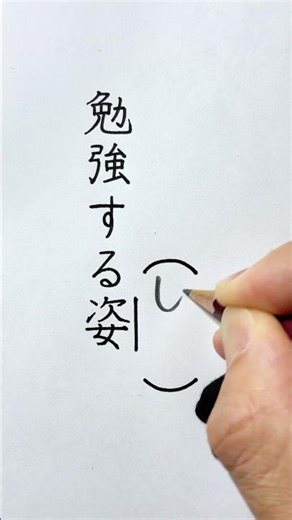 勉強する姿
(し )